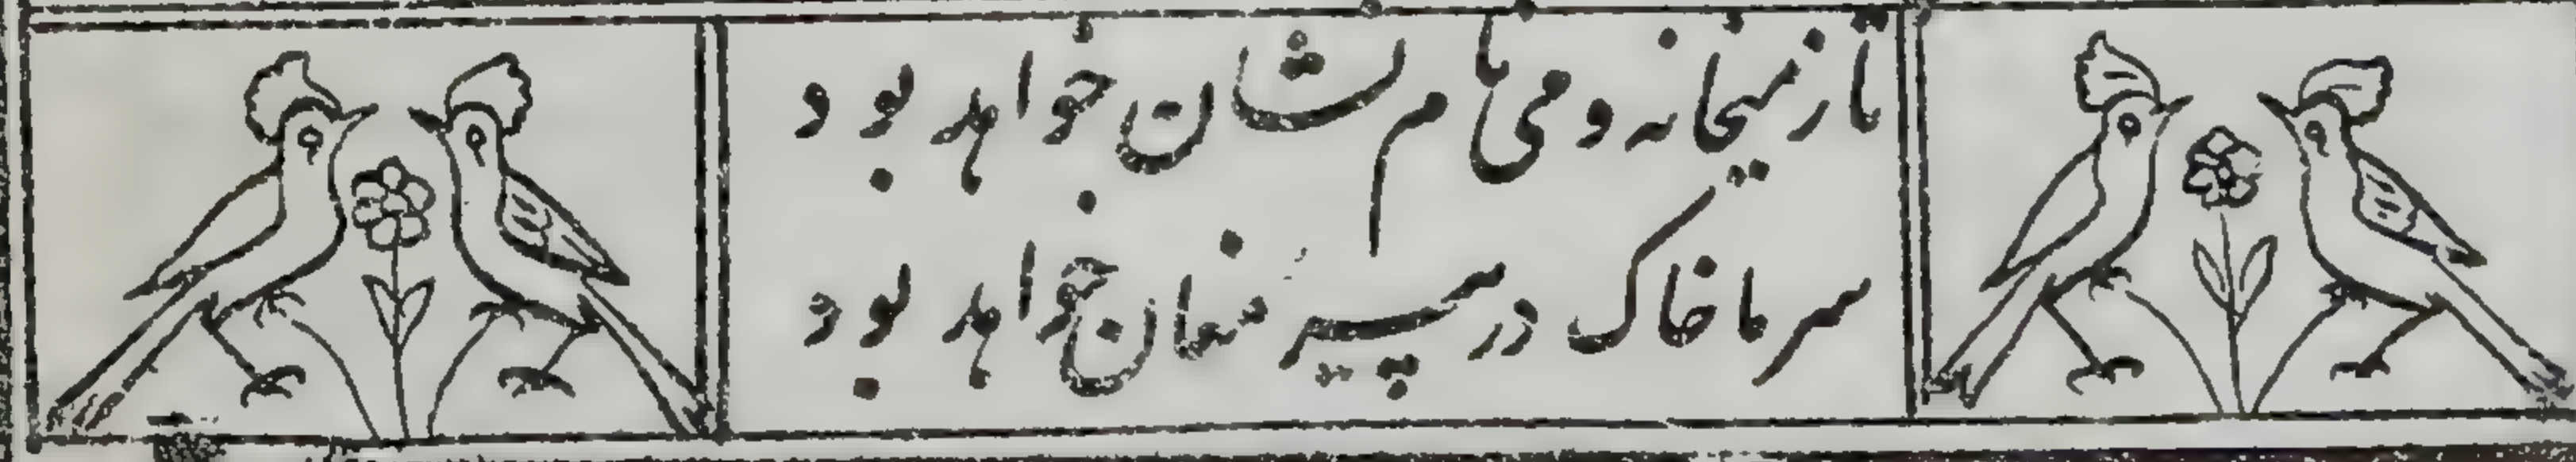 تا ز میخانه و می نام نشان خواهد بود
سر ما خاک در پیر مغان خواهد بود